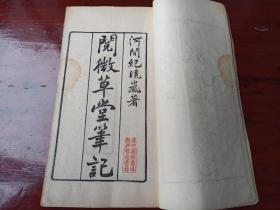 河間紀曉嵐著
閱微草堂筆記